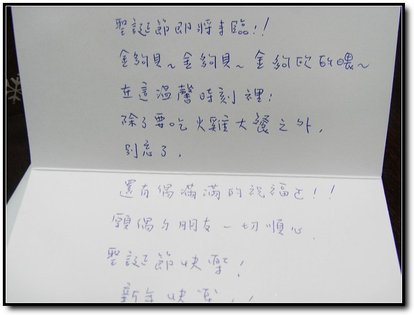 聖誕節即將來臨!!
金鉤貝~金鉤貝~金鉤
在這溫馨時刻裡:
除了要吃火雞大餐之外,
別忘了,
還有偶滿滿的祝福ㄛ!!
願偶ㄉ朋友一切順心
聖誕節快樂!
新年快樂!!